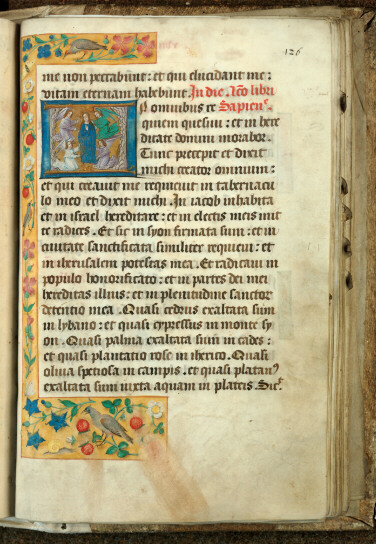 126
me non peccabunt: et qui elucidant me:
vitam eternam habebunt. In die. Lco libri
N omnibus re Sapien
quiem quesiui: et in here
ditate domini morabor.
Tunc precepit et dixit
michi creator omnium:
et qui creauit me requieuit in tabernacu
lo meo et dixit michi. In iacob inhabita
et in israel hereditare: et in electis meis mit
te radices. Et sic in syon firmata sum: et in
ciuitate sanctificata similiter requieui: et
in iherusalem potestas mea. Et radicaui in
populo honorificato: et in partes dei mei
hereditas illius: et in plenitudine sanctor
detentio mea. Quasi cedrus exaltata sum
in lybano: et quasi cypressus in monte sy
on. Quasi palma exaltata sum in cades:
et quasi plantatio rose in iherico. Quasi
oliua speciosa in campis. et quasi platan
exaltata sum iuxta aquam in plateis. Sic